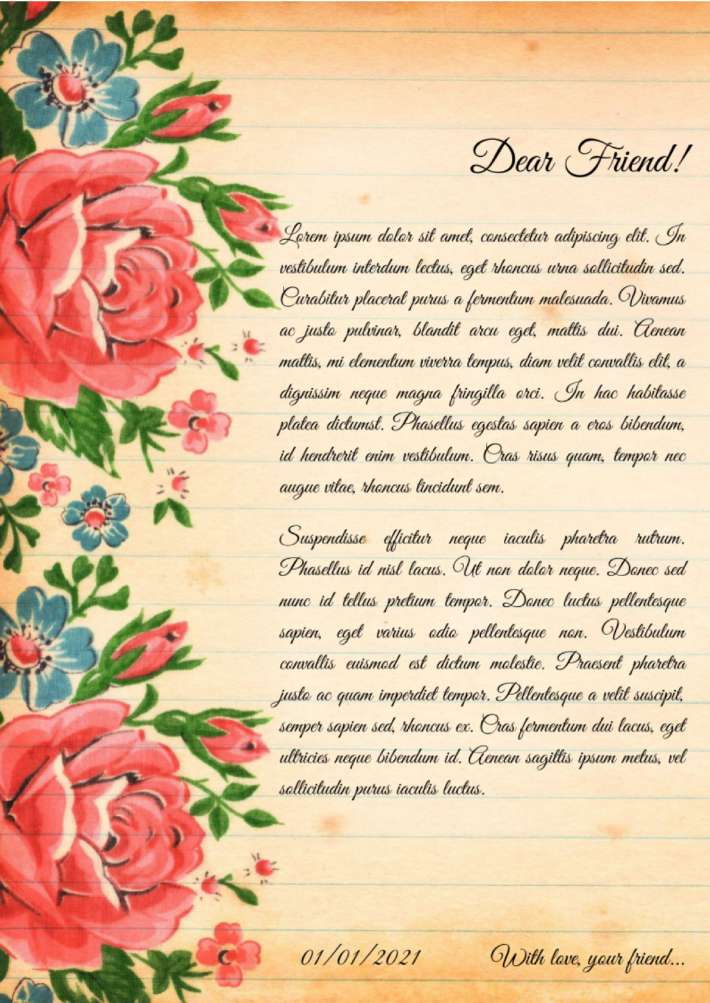 Dear Friend!
Lorem ipsum dolor sit amet, consectetur adipiscing elit. In
vestibulum interdum lectus, eget rhoncus urna sollicitudin sed.
Curabitur placerat purus a fermentum malesuada. Vivamus
ac justo pulvinar, blandit arcu eget, mattis dui. Aenean
mattis, mi elementum viverra tempus, diam velit convallis elit, a
dignissim neque magna fringilla orci. In hac habitasse
platea dictumst. Phasellus egestas sapien a eros bibendum,
id hendrerit enim vestibulum. Cras risus quam, tempor nec
augue vitae, rhoncus tincidunt sem.
Suspendisse efficitur neque iaculis pharetra rutrum.
Phasellus id nisl lacus. Ut non dolor neque. Donec sed
nunc id tellus pretium tempor. Donec luctus pellentesque
sapien, eget varius odio pellentesque non. Vestibulum
convallis euismod est dictum molestie. Praesent pharetra
justo ac quam imperdiet tempor. Pellentesque a velit suscipit,
semper sapien sed, rhoncus ex. Cras fermentum dui lacus, eget
ultricies neque bibendum id. Aenean sagittis ipsum metus, vel
sollicitudin purus iaculis luctus.
01/01/2021 With love, your friend...